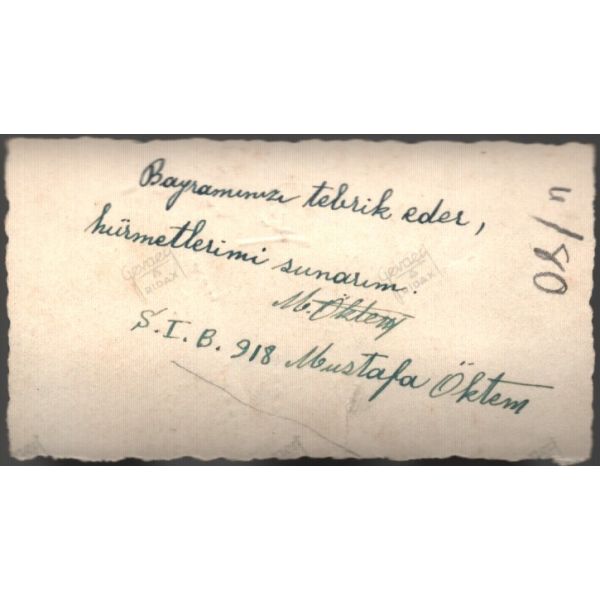 Bayramınızı tebrik eder,
hürmetlerimi sunarım.
M. Öktem
Ş.I.B. 918 Mustafa Öktem
Gevaert
RIDAX
Gevaert
RIDAX
u/80